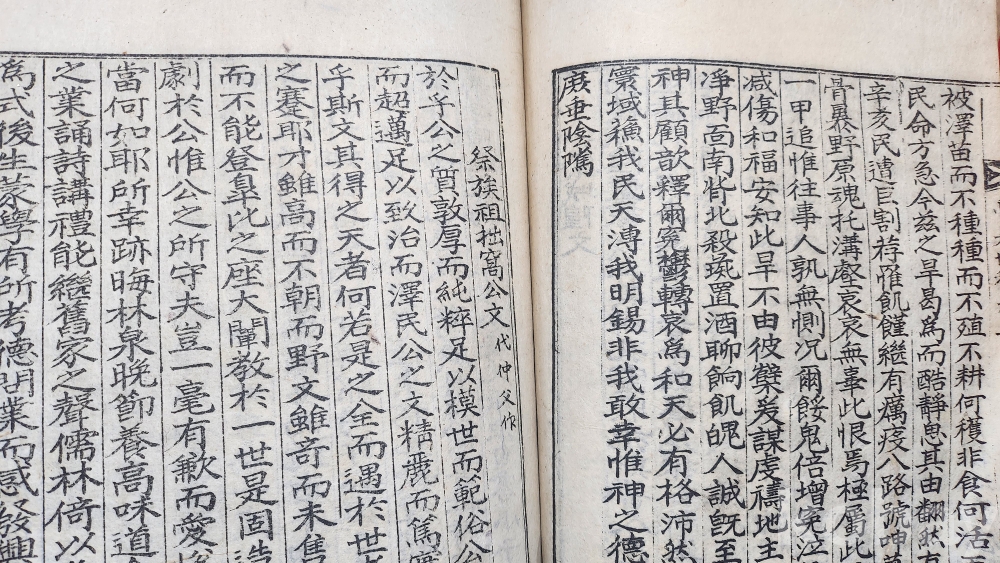 被澤苗而不種種而不殖不耕何穫非食何活
民命方急今玆之旱曷爲而酷靜思其由翻然
辛亥民遭巨割荐惟飢饉繼有癘疫八路號呻
骨暴野原魂托溝壑哀哀無辜此恨焉極屬此
一甲追惟往事人孰無惻况爾餒鬼倍增寃泣
感傷和福安知此旱不由彼櫱爰謀虔禱地主
淨野面南背北殺瓺置酒聊餉飢魄人誠旣至
神其顧歆釋爾寃鬱轉哀爲和天必有格沛然
寰域穌我民天溥我明錫非我敢幸惟神之德
庶垂陰隲
祭族祖拙窩公文 代仲父作
於乎公之質敦厚而純粹足以模世而範俗公
而超邁足以致治而澤民公之文精麗而篤實
乎斯文其得之天者何若是之全而遇於世
之蹇耶才雖高而不朝而野文雖奇而未售
而不能登臯比之座大闡教於一世是固造
劇於公惟公之所守夫豈一毫有歉而愛
當何如耶所幸跡晦林泉晩節養高味道
之業誦詩講禮能繼舊家之聲儒林倚以
爲式後生蒙學有所考德問業而感發興